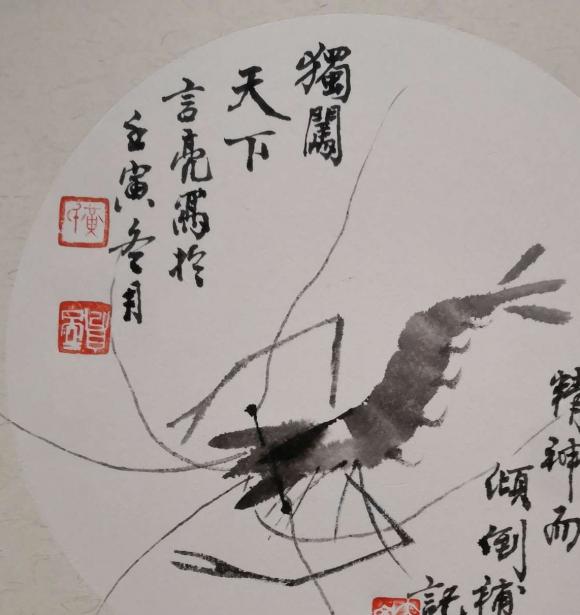 獨闖
天下
言亮寫於
壬寅冬月
精神而
傾倒補
記